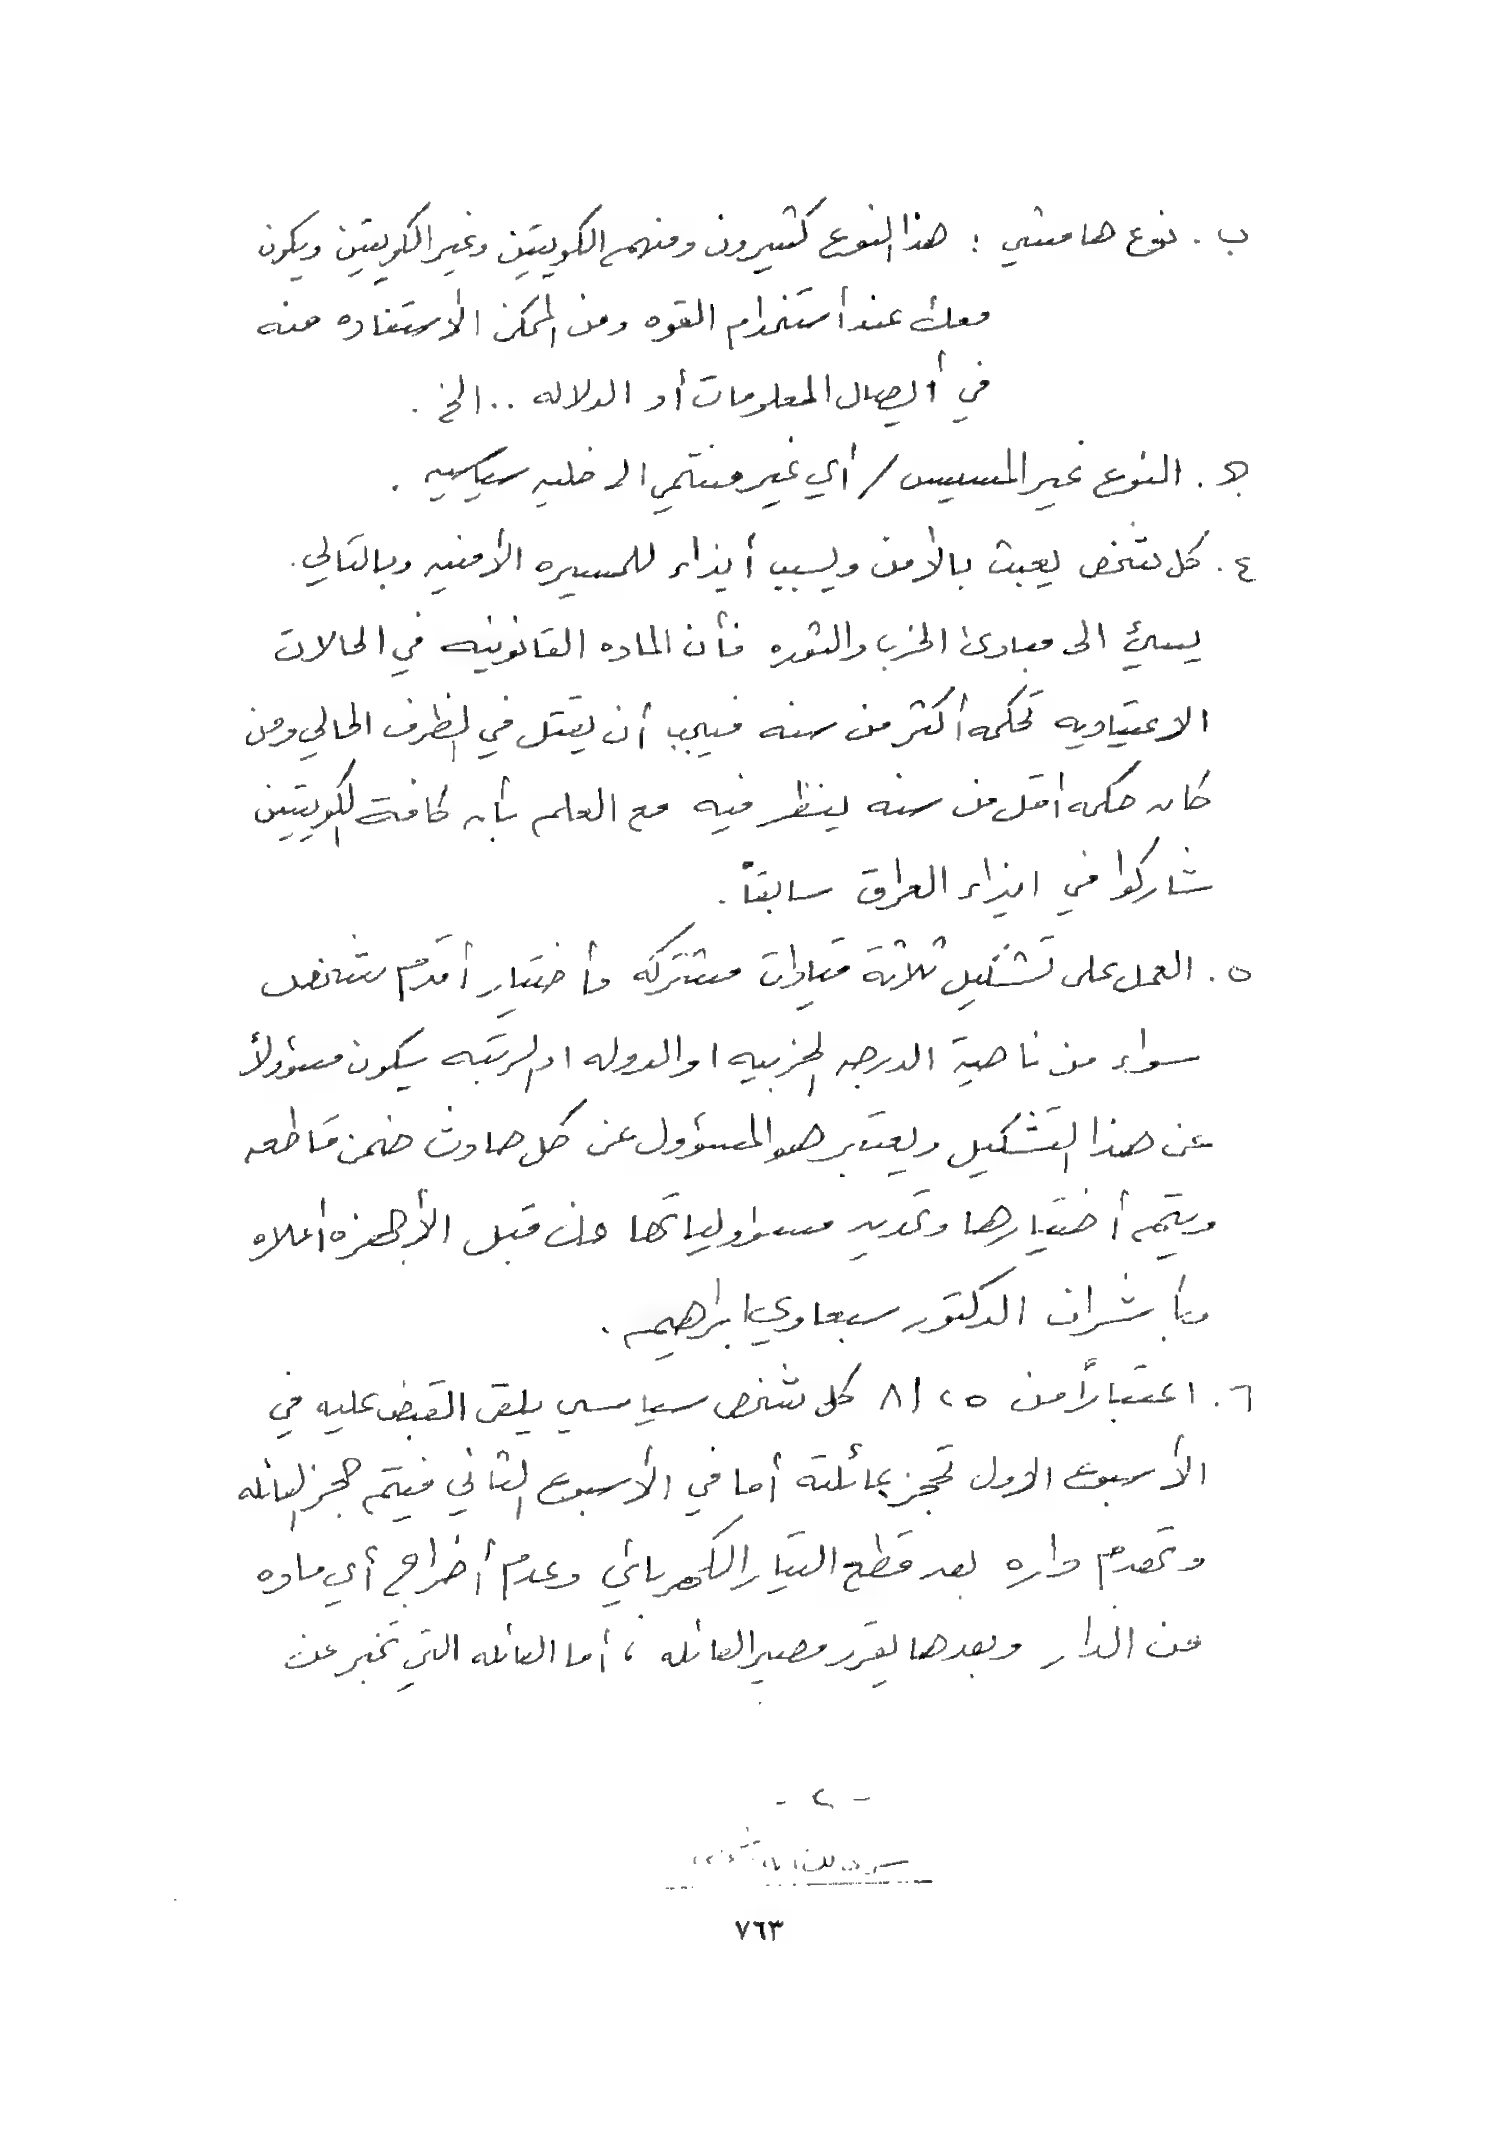 ب. نوع هامشي : هذا النوع كثيرون ومنهم الكويتين وغير الكويتين ويكون
معك عند أستخدام القوه ومن الممكن الأستفاده منه
في أيصال المعلومات أو الدلاله .. الخ .
جـ. النوع غير المسيس / أي غير منتمي الى خليه سياسيه .
٤. كل شخص يعبث بالأمن ويسبب أيذاء للمسيره الأمنيه وبالتالي
يسيئ الى مبادئ الحزب والثوره فأن الماده القانونيه في الحالات
الاعتياديه تحكمه أكثر من سنه فيجب أن يقتل في الظرف الحالي ومن
كان حكمه أقل من سنه ينظر فيه مع العلم بأن كافة الكويتيين
شاركوا في ايذاء العراق سابقاً .
٥. العمل على تشكيل ثلاثة قيادات مشتركه وأختيار أقدم شخص
سواء من ناحية الدرجه الحزبيه او الدوله او الرتبه سيكون مسؤولاً
عن هذا التشكيل ويعتبر هو المسؤول عن كل حادث ضمن قاطعه
ويتم أختيارها وتحديد مسؤولياتها من قبل الأجهزه أعلاه
وبأشراف الدكتور سبعاوي ابراهيم .
٦. اعتباراً من ٢٥ / ٨ كل شخص سياسي يلقى القبض عليه في
الأسبوع الاول تحجز عائلته أما في الأسبوع الثاني فيتم حجز العائله
وتهدم داره بعد قطع التيار الكهربائي وعدم أخراج أي ماده
من الدار وبعدها يقرر مصير العائله ، أما العائله التي تخبر عن
- ٢ -
٧٦٣